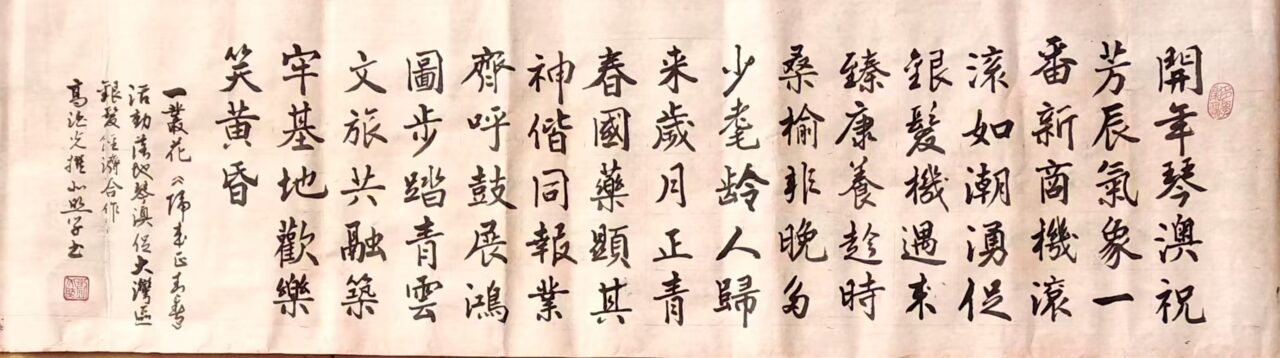 開年琴澳祝
芳辰氣象一
番新商機滾
滚如潮湧促
銀髮機遇来
臻康養趁時
桑榆非晚多
少耄龄人歸
来歲月正青
春國藥顯其
神偕同報業
齊呼鼓展鴻
圖步踏青雲
文旅共融築
牢基地歡樂
笑黄昏
一叢花《歸来正青春
活動落地琴澳促大灣區
銀髮經濟合作
高光撰书